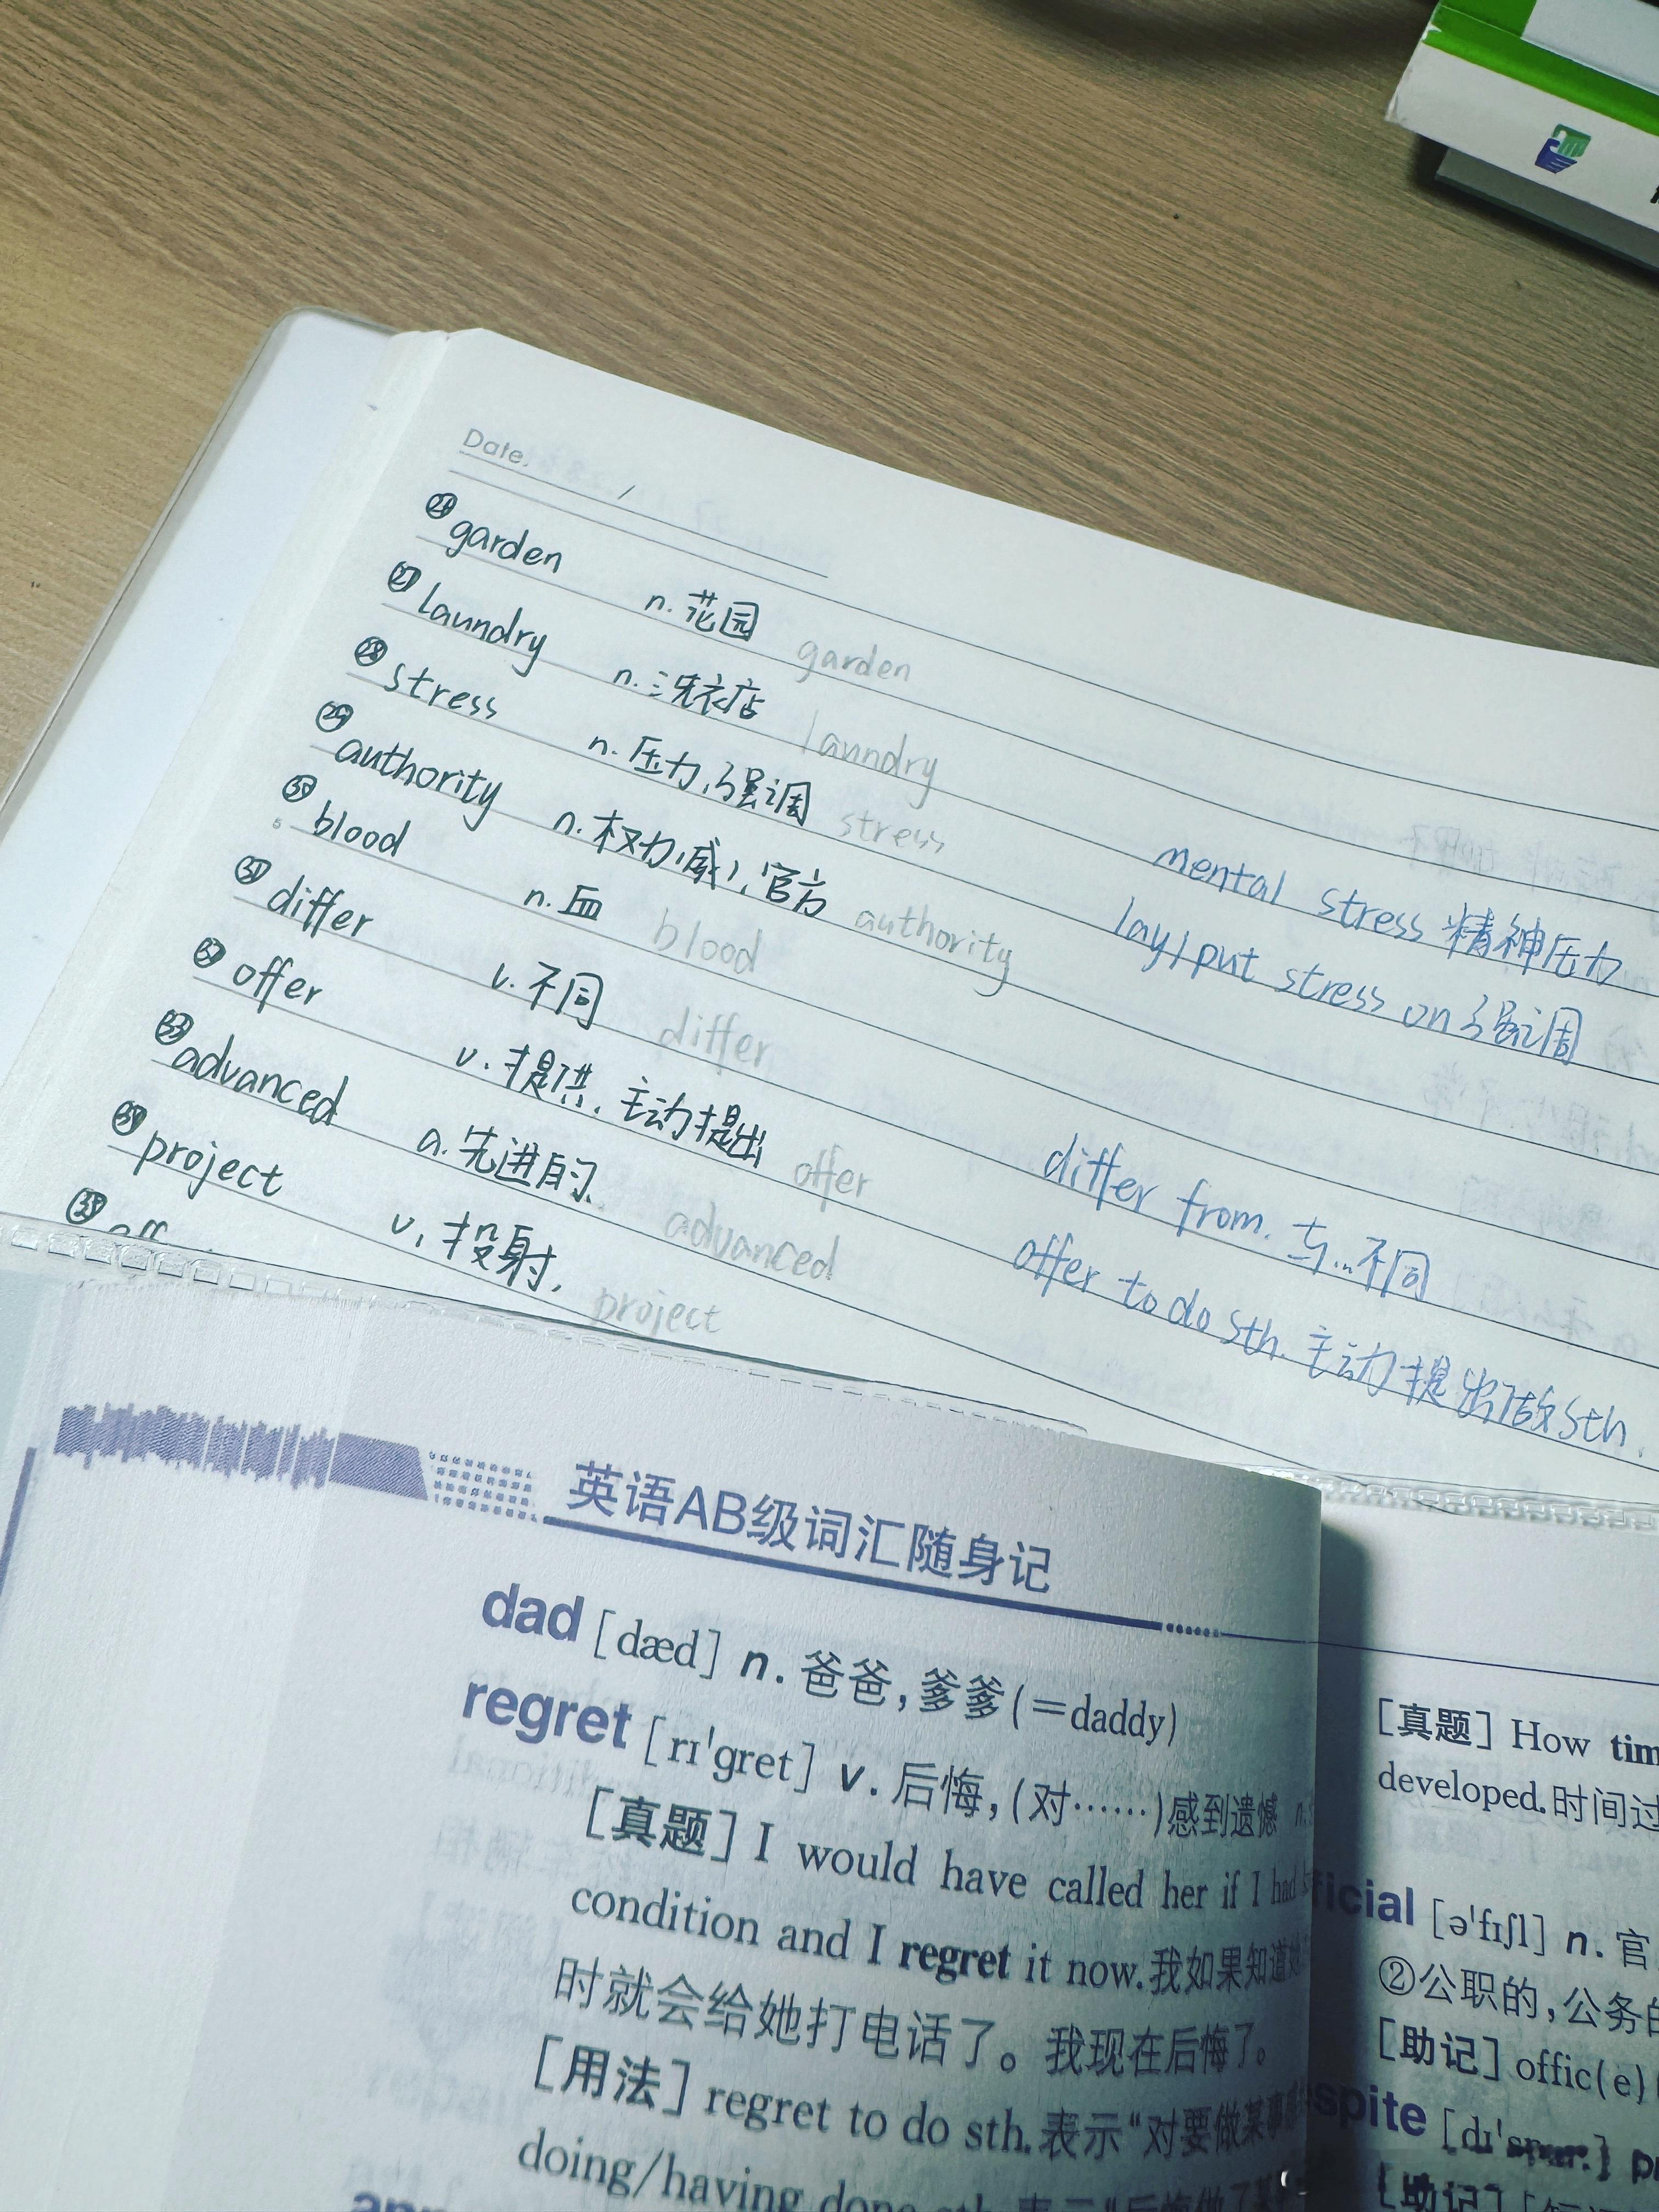 Date.
㉖ garden n. 花园 garden
㉗ laundry n. 洗衣店 laundry
㉘ stress n. 压力,强调 stress mental stress 精神压力
lay/put stress on 强调
㉙ authority n. 权力(威),官方 authority
㉚ blood n. 血 blood
㉛ differ v. 不同 differ differ from. 与…不同
㉜ offer v. 提供. 主动提出 offer offer to do sth. 主动提出做sth.
㉝ advanced a. 先进的. advanced
㉞ project v. 投射. project
㉟ off
英语AB级词汇随身记
dad [dæd] n. 爸爸,爹爹(=daddy)
regret [rɪˈgret] v. 后悔,(对……)感到遗憾 n.
[真题] I would have called her if I had
condition and I regret it now.我如果知道
时就会给她打电话了。我现在后悔了。
[用法] regret to do sth.表示“对要做某事
doing/having done sth.表示“后悔做了某
[真题] How tim
developed.时间过
ficial [əˈfɪʃl] n. 官
②公职的,公务的
[助记] offic(e)
spite
[助记]